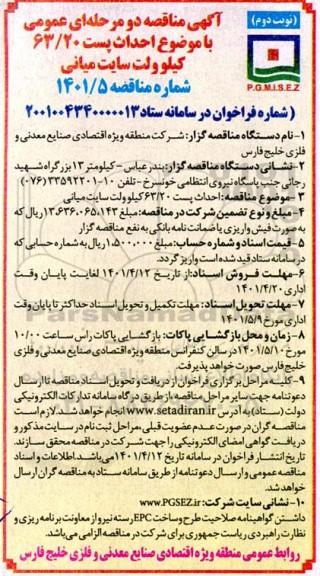 (نوبت دوم)
آگهی مناقصه دو مرحله‌ای عمومی
با موضوع احداث پست ۶۳/۲۰
کیلو ولت سایت میانی
شماره مناقصه ۱۴۰۱/۵
P.G.M.I.S.E.Z
( شماره فراخوان در سامانه ستاد ۲۰۰۱۰۰۴۳۴۰۰۰۰۰۱۳
۱- نام دستگاه مناقصه گزار: شرکت منطقه ویژه اقتصادی صنایع معدنی و
فلزی خلیج فارس
۲- نشانی دستگاه مناقصه گزار: بندرعباس - کیلومتر ۱۳ بزرگراه شهید
رجائی جنب پاسگاه نیروی انتظامی خونسرخ - تلفن ۱۰-۳۳۵۹۲۲۰۱ (۰۷۶)
۳- موضوع مناقصه: احداث پست ۶۳/۲۰ کیلو ولت سایت میانی
۴- مبلغ و نوع تضمین شرکت در مناقصه: مبلغ ۱۳،۶۳۶،۰۶۵،۱۴۳ ریال که
به صورت فیش واریزی یا ضمانت نامه بانکی به نفع مناقصه گزار
۵- قیمت اسناد و شماره حساب: مبلغ ۱،۵۰۰،۰۰۰ ریال به شماره حسابی که
در سامانه ستاد قید شده است واریز گردد.
۶- مهلت فروش اسناد: از تاریخ ۱۴۰۱/۴/۱۲ لغایت پایان وقت
اداری ۱۴۰۱/۴/۲۰
۷- مهلت تحویل اسناد: مهلت تکمیل و تحویل اسناد حداکثر تا پایان وقت
اداری مورخ ۱۴۰۱/۵/۹
۸- زمان و محل بازگشایی پاکات: بازگشایی پاکات راس ساعت ۱۰/۰۰
مورخ ۱۴۰۱/۵/۱۰ در سالن کنفرانس منطقه ویژه اقتصادی صنایع معدنی و فلزی
خلیج فارس صورت خواهد پذیرفت.
۹- کلیه مراحل برگزاری فراخوان از دریافت و تحویل اسناد مناقصه تا ارسال
دعوتنامه جهت سایر مراحل مناقصه از طریق درگاه سامانه تدارکات الکترونیکی
دولت (ستاد) به آدرس www.setadiran.ir انجام خواهد شد. لازم است
مناقصه گران در صورت عدم عضویت قبلی، مراحل ثبت نام در سایت مذکور و
دریافت گواهی امضای الکترونیکی را جهت شرکت در مناقصه محقق سازند.
تاریخ انتشار فراخوان در سامانه تاریخ ۱۴۰۱/۴/۱۲ می‌باشد. اطلاعات و اسناد
مناقصه عمومی و ارسال دعوتنامه از طریق سامانه ستاد به مناقصه گران ارسال
خواهد شد.
۱۰- نشانی سایت شرکت: www.PGSEZ.ir
داشتن گواهینامه صلاحیت طرح و ساخت EPC رسته نیرو از معاونت برنامه ریزی و
نظارت راهبردی ریاست جمهوری برای شرکت در مناقصه الزامی می‌باشد.
روابط عمومی منطقه ویژه اقتصادی صنایع معدنی و فلزی خلیج فارس